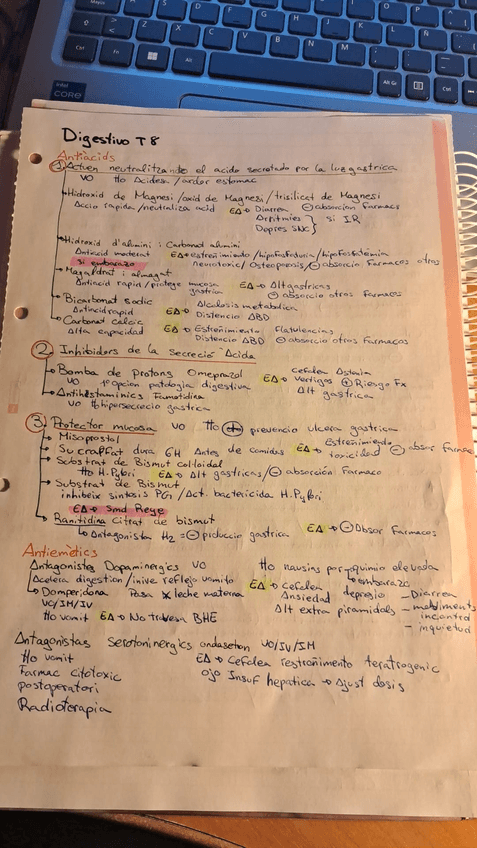 Digestivo T8
Antiàcids
① Actuen neutralitzando el acido secretado por la luz gastrica
VO Tto Acidesa / ardor estomac
Hidroxid de Magnesi/oxid de Magnesi/trisilicat de Magnesi
Accio rapida/neutraliza acid EA→ Diarrea ⊖ absorcion Farmacs
Arritmies } si I.R
Depres SNC
Hidroxid d'alumini i Carbonat alumini
Antiacid moderat EA→ estreñimiento/hipofosfaturia/hipofosfatemia
si embarazo neurotoxic/Osteoporosis/⊖ absorcio Farmacos otros
Magaldrat i almagat
Antiacid rapid/protege mucosa gastrica EA→ Alt gastricas
⊖ absorcio otros Farmacos
Bicarbonat sodic
Antiacid rapid EA→ Alcalosis metabolica
Distencio ABD
Carbonat calcic
Alta capacidad EA→ Estreñimiento Flatulencias
Distencio ABD ⊖ absorcio otros Farmacos
② Inhibidors de la Secreció Acida
Bomba de Protons Omeprazol
VO 1ª opcion patologia digestiva EA→ Cefalea Astenia
Vertigos ⊕ Riesgo Fx
Alt gastrica
Antihestaminics Famotidina
VO Tto hipersecrecio gastrica
③ Protector mucosa VO Tto ⊕ prevencio ulcera gastrica
Misoprostal
Sucralfat dura 6H Antes de comidas EA→ Estreñimiento
toxicidad ⊖ absor Farmacs
Substrat de Bismut col·loidal
Tto H. Pylori EA→ Alt gastricas/⊖ absorción Farmaco
Substrat de Bismut
inhibeix sintosis PGs/Act. bactericida H. Pylori
EA→ Smd Reye
Ranitidina Citrat de bismut
Antagonista H2 = ⊖ producció gastrica EA→ ⊖ Absor Farmacos
Antiemètics
Antagonistes Dopaminèrgics VO Tto nausins por → quimio elevada
embarazo
Acelera digestión/inive reflejo vomito EA→ Cefalea
Ansiedad depresio
Alt extra piramidals
- Diarrea
- incontrol
- inquietud
Domperidona Pasa X leche materna
VO/IM/IV
Tto vomit EA→ No travesa BHE
Antagonistas Serotoninergics ondasetron VO/IV/IM
Tto vomit EA→ Cefalea restreñimento teratrogenic
Farmac citotoxic ojo Insuf hepatica → Ajust dosis
postoperatori
Radioterapia